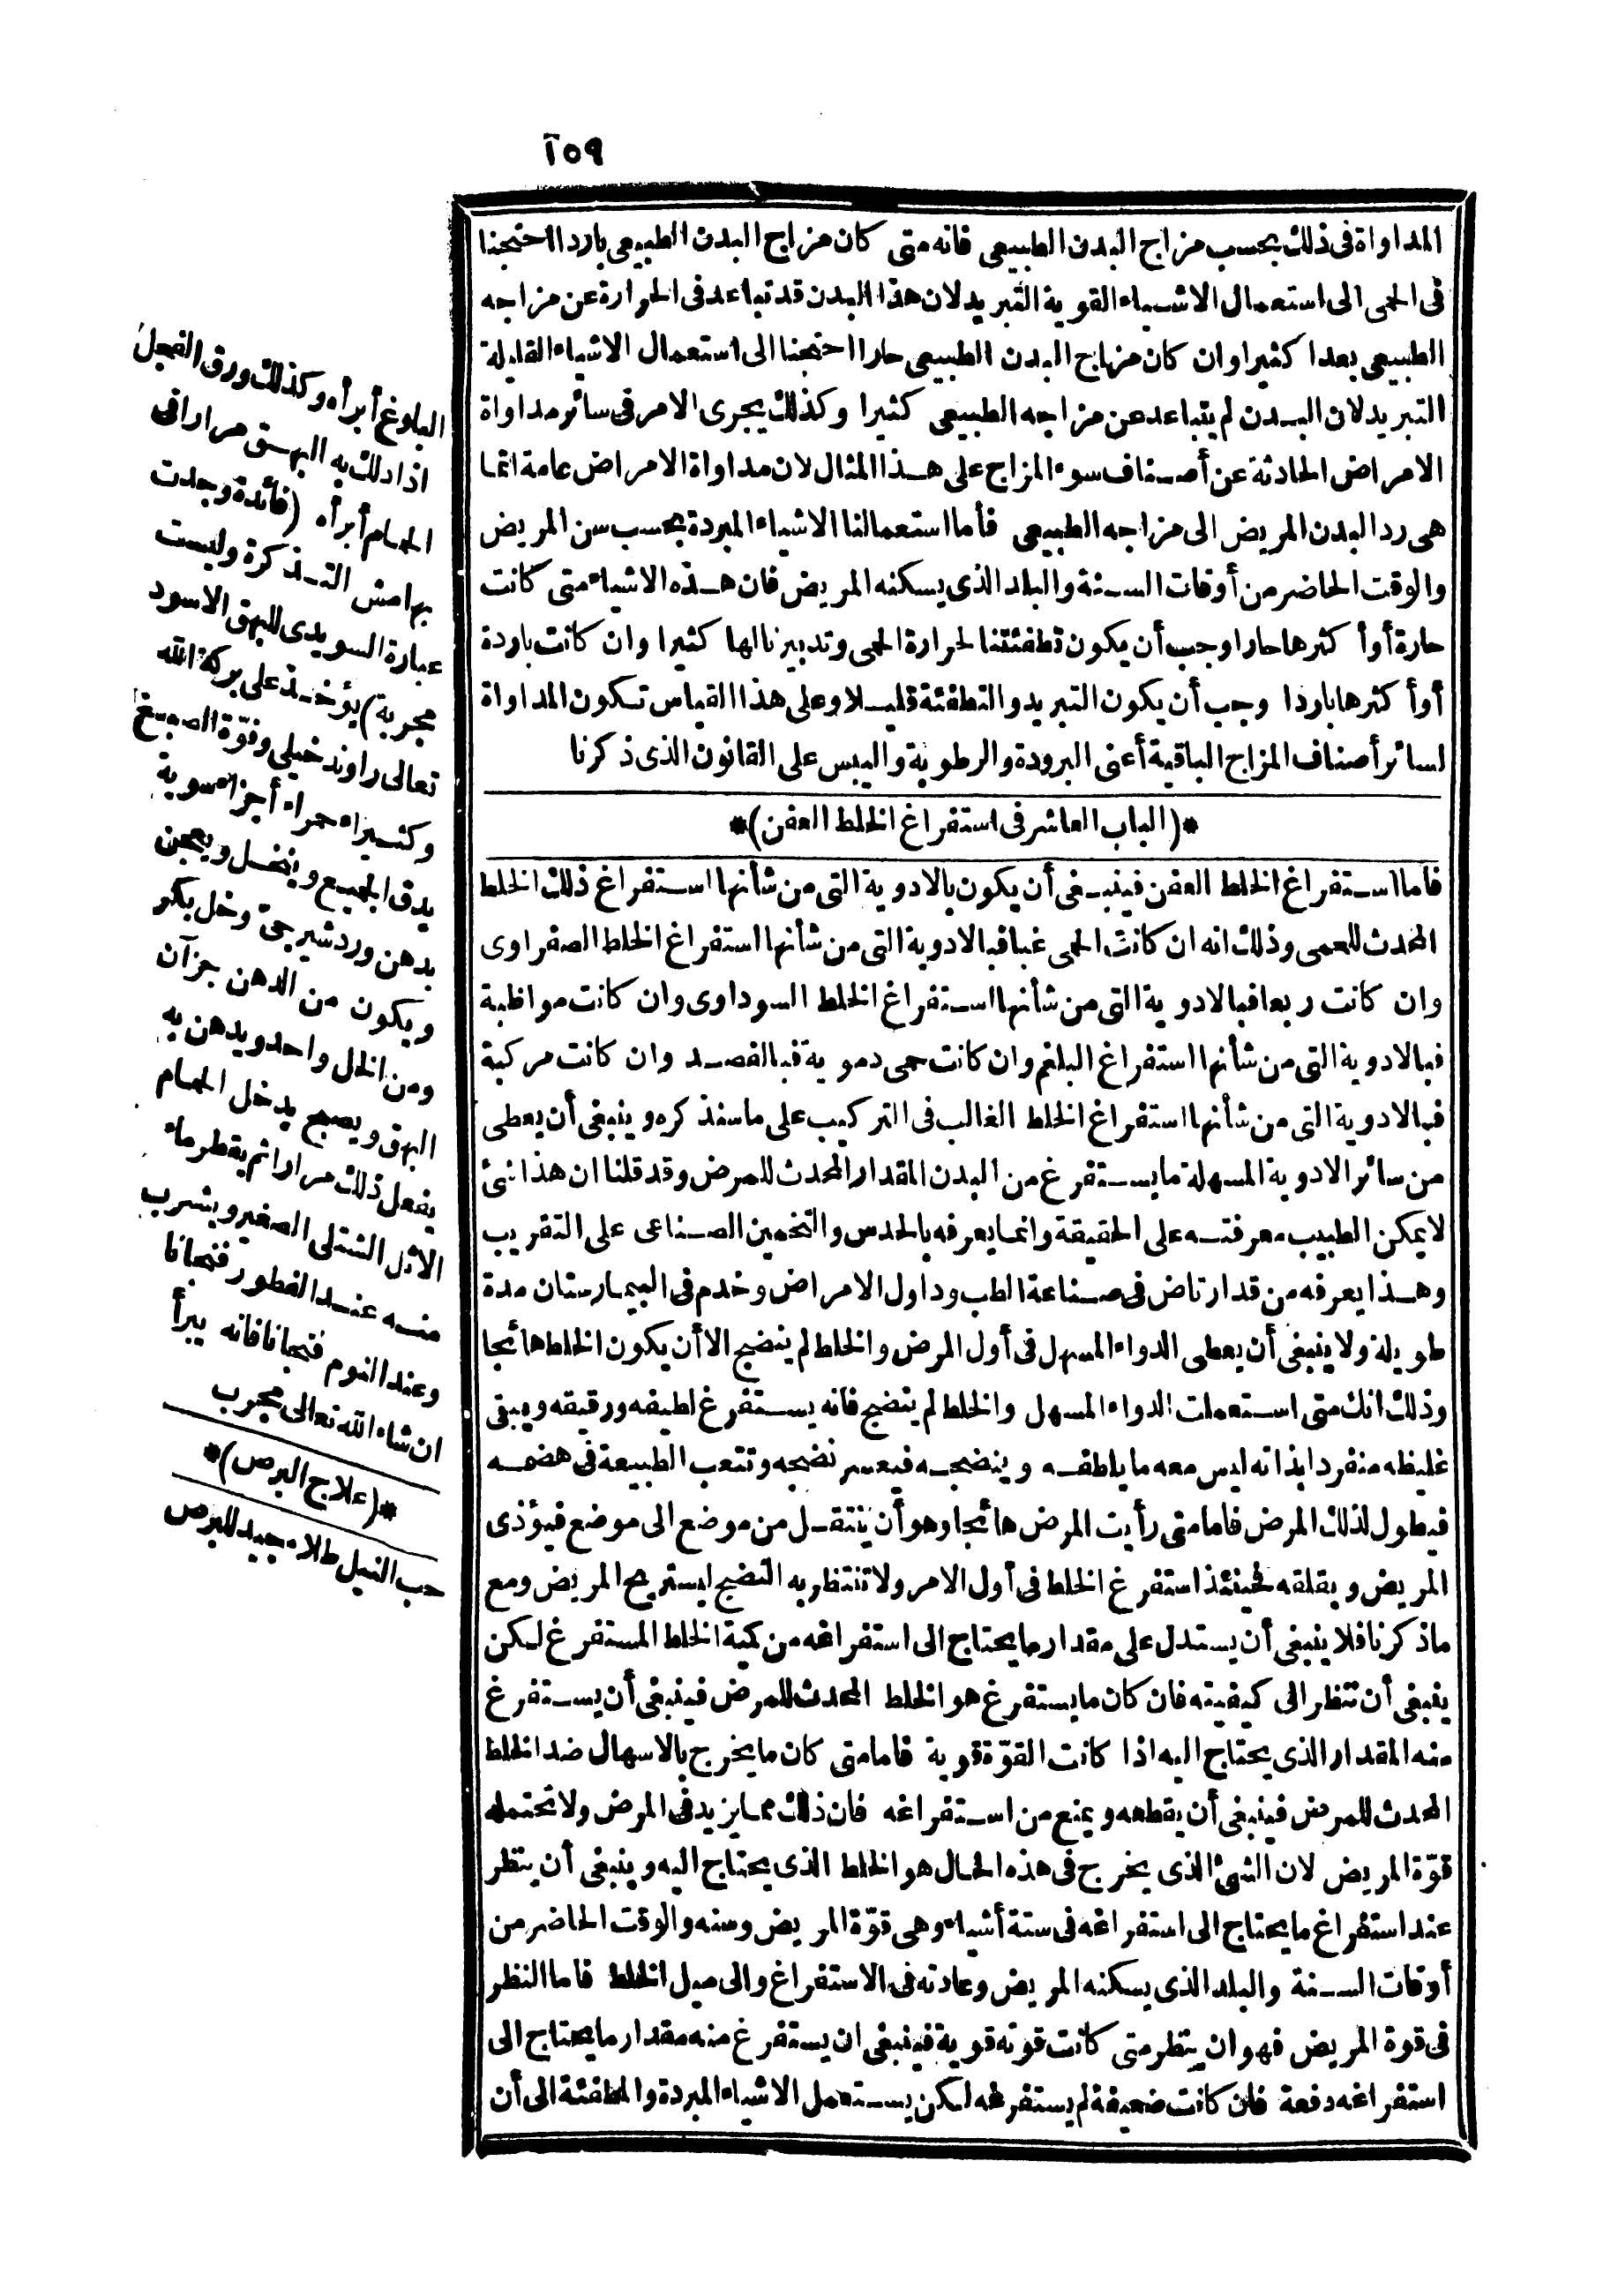 ٢٥٩
المداواة فى ذلك بحسب مزاج البدن الطبيعى فانه متى كان مزاج البدن الطبيعى باردا احتجنا
فى الحمى الى استعمال الاشياء القوية التبريد لان هذا البدن قد تباعد فى الحرارة عن مزاجه
الطبيعى بعدا كثيرا وان كان مزاج البدن الطبيعى حارا احتجنا الى استعمال الاشياء القليلة
التبريد لان البدن لم يتباعد عن مزاجه الطبيعى كثيرا وكذلك يجرى الامر فى سائر مداواة
الامراض الحادثة عن أصناف سوء المزاج على هذا المثال لان مداواة الامراض عامة انما
هى رد البدن المريض الى مزاجه الطبيعى فأما استعمالنا الاشياء المبردة بحسب سن المريض
والوقت الحاضر من أوقات السنة والبلد الذى يسكنه المريض فان هذه الاشياء متى كانت
حارة أو أكثرها حارا وجب أن يكون تطفئتنا لحرارة الحمى وتدبيرنا لها كثيرا وان كانت باردة
أو أكثرها باردا وجب أن يكون التبريد والتطفئة قليلا وعلى هذا القياس تكون المداواة
لسائر أصناف المزاج الباقية أعنى البرودة والرطوبة واليبس على القانون الذى ذكرنا
*(الباب العاشر فى استفراغ الخلط العفن)*
فاما استفراغ الخلط العفن فينبغى أن يكون بالادوية التى من شأنها استفراغ ذلك الخلط
المحدث للحمى وذلك انه ان كانت الحمى غبا فبالادوية التى من شأنها استفراغ الخلط الصفراوى
وان كانت ربعا فبالادوية التى من شأنها استفراغ الخلط السوداوى وان كانت مواظبة
فبالادوية التى من شأنها استفراغ البلغم وان كانت حمى دموية فبالفصد وان كانت مركبة
فبالادوية التى من شأنها استفراغ الخلط الغالب فى التركيب على ما سنذكره وينبغى أن يعطى
من سائر الادوية المسهلة ما يستفرغ من البدن المقدار المحدث للمرض وقد قلنا ان هذا شئ
لا يمكن الطبيب معرفته على الحقيقة وانما يعرفه بالحدس والتخمين الصناعى على التقريب
وهذا يعرفه من قد ارتاض فى صناعة الطب وداول الامراض وخدم فى البيمارستان مدة
طويلة ولا ينبغى أن يعطى الدواء المسهل فى أول المرض والخلط لم ينضج الا أن يكون الخلط هائجا
وذلك انك متى استعملت الدواء المسهل والخلط لم ينضج فانه يستفرغ لطيفه ورقيقه ويبقى
غليظه منفردا بذاته ليس معه ما يلطفه وينضجه فيعسر نضجه وتتعب الطبيعة فى هضمه
فيطول لذلك المرض فاما متى رأيت المرض هائجا وهو أن ينتقل من موضع الى موضع فيؤذى
المريض ويقلقه فحينئذ استفرغ الخلط فى أول الامر ولا تنتظر به النضج ليستريح المريض ومع
ما ذكرنا فلا ينبغى أن يستدل على مقدار ما يحتاج الى استفراغه من كمية الخلط المستفرغ لكن
ينبغى أن تنظر الى كيفيته فان كان ما يستفرغ هو الخلط المحدث للمرض فينبغى أن يستفرغ
منه المقدار الذى يحتاج اليه اذا كانت القوّة قوية فاما متى كان ما يخرج بالاسهال ضد الخلط
المحدث للمرض فينبغى أن يقطعه ويمنع من استفراغه فان ذلك مما يزيد فى المرض ولا تحتمله
قوّة المريض لان الشئ الذى يخرج فى هذه الحال هو الخلط الذى يحتاج اليه وينبغى أن ينظر
عند استفراغ ما يحتاج الى استفراغه فى ستة أشياء وهى قوّة المريض وسنه والوقت الحاضر من
أوقات السنة والبلد الذى يسكنه المريض وعادته فى الاستفراغ والى ميل الخلط فاما النظر
فى قوة المريض فهو ان ينظر متى كانت قوته قوية فينبغى ان يستفرغ منه مقدار ما يحتاج الى
استفراغه دفعة فان كانت ضعيفة لم يستفرغه لكن يستعمل الاشياء المبردة والمطفئة الى أن
البلوغ أبرأه وكذلك ورق الفجل
اذا دلك به البهق مرارا فى
الحمام أبرأه (فائدة وجدت
بهامش التذكرة وليست
عبارة السويدى للبهق الاسود
مجربة) يؤخذ على بركة الله
تعالى راوند خيلى وفوّة الصبيغ
وكثيراء حمراء أجزاء سوية
يدق الجميع وينخل ويعجن
بدهن ورد شيرجىّ وخل بكر
ويكون من الدهن جزآن
ومن الخل واحد ويدهن به
البهق ويصبح يدخل الحمام
يفعل ذلك مرارا ثم يقطر ماء
الاثل الشتلى الصغير ويشرب
منه عند الفطور فنجانا
وعند النوم فنجانا فانه يبرأ
ان شاء الله تعالى مجرب
*(علاج البرص)*
حب النيل طلاء جيد للبرص